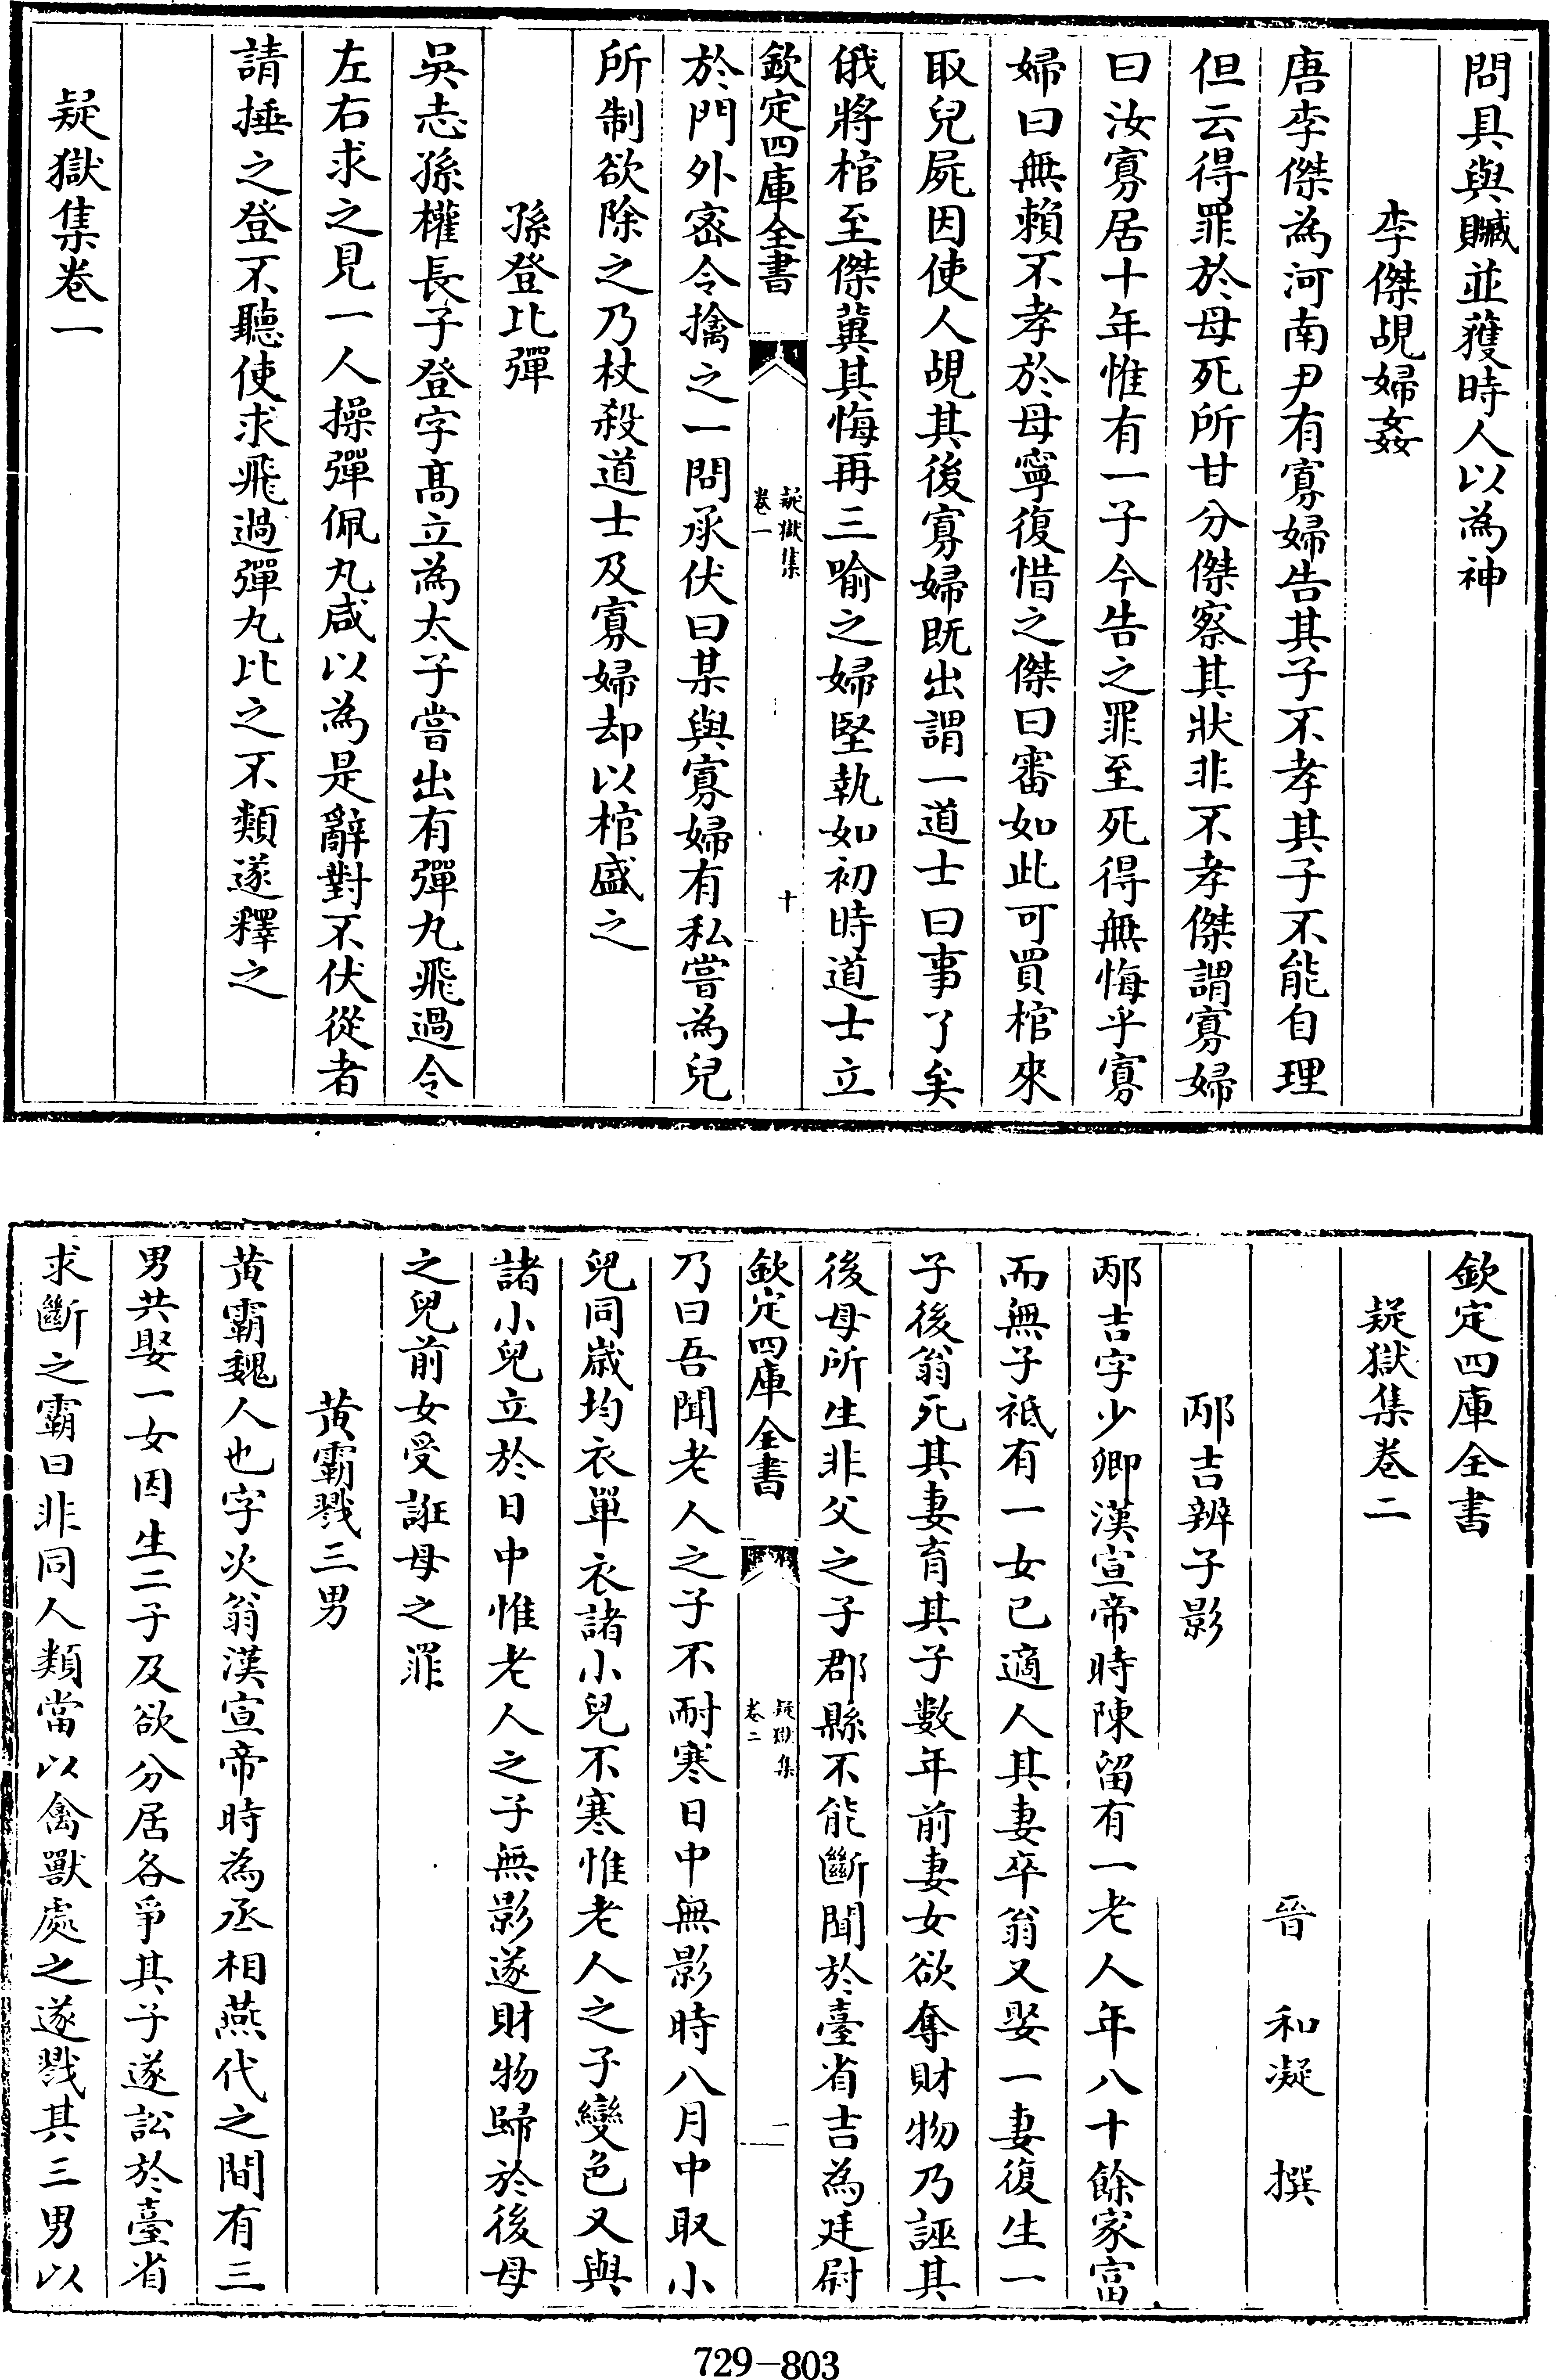 問具與贓並獲時人以為神
李傑覘婦姦
唐李傑為河南尹有寡婦告其子不孝其子不能自理
但云得罪於母死所甘分傑察其狀非不孝傑謂寡婦
曰汝寡居十年惟有一子今告之罪至死得無悔乎寡
婦曰無賴不孝於母寧復惜之傑曰審如此可買棺來
取兒屍因使人覘其後寡婦既出謂一道士曰事了矣
俄將棺至傑冀其悔再三喻之婦堅執如初時道士立
欽定四庫全書
疑獄集
卷一
十
於門外密令擒之一問承伏曰某與寡婦有私嘗為兒
所制欲除之乃杖殺道士及寡婦却以棺盛之
孫登比彈
吳志孫權長子登字髙立為太子嘗出有彈丸飛過令
左右求之見一人操彈佩丸咸以為是辭對不伏從者
請捶之登不聽使求飛過彈丸比之不類遂釋之
疑獄集卷一
欽定四庫全書
疑獄集卷二
晉 和凝 撰
邴吉辨子影
邴吉字少卿漢宣帝時陳留有一老人年八十餘家富
而無子祗有一女已適人其妻卒翁又娶一妻復生一
子後翁死其妻育其子數年前妻女欲奪財物乃誣其
後母所生非父之子郡縣不能斷聞於臺省吉為廷尉
欽定四庫全書
疑獄集
卷二
一
乃曰吾聞老人之子不耐寒日中無影時八月中取小
兒同歲均衣單衣諸小兒不寒惟老人之子變色又與
諸小兒立於日中惟老人之子無影遂財物歸於後母
之兒前女受誑母之罪
黄霸戮三男
黄霸魏人也字次翁漢宣帝時為丞相燕代之間有三
男共娶一女因生二子及欲分居各爭其子遂訟於臺省
求斷之霸曰非同人類當以禽獸處之遂戮其三男以
729—803